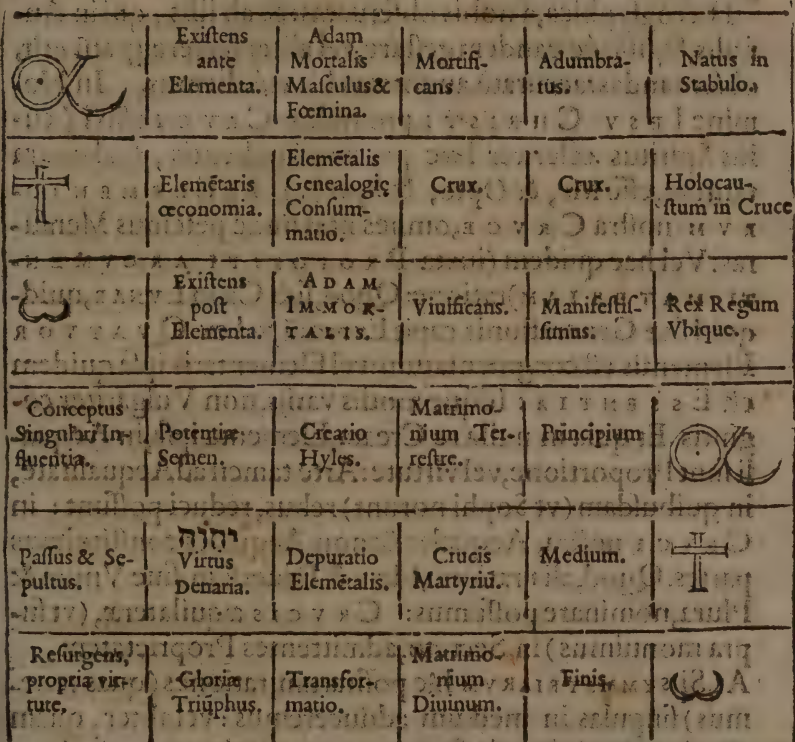 Exiſtens
ante
Elementa.
Adam
Mortalis
Maſculus &
Fœmina.
Mortifi-
cans
Adumbra-
tus.
Natus in
Stabulo.
Elemētaris
œconomia.
Elemētalis
Genealogię
Conſum-
matio.
Crux.
Crux.
Holocau-
ſtum in Cruce
Exiſtens
poſt
Elementa.
ADAM
IMMOR-
TALIS.
Viuificans.
Manifeſtiſ-
ſimus.
Rex Regum
Vbique.
Conceptus
Singulari In-
fluentia.
Potentiæ
Semen.
Creatio
Hyles.
Matrimo-
nium Ter-
reſtre.
Principium
Paſſus & Se-
pultus.
יהוה
Virtus
Denaria.
Depuratio
Elemētalis.
Crucis
Martyriū.
Medium.
Reſurgens,
propria vir-
tute.
Gloriæ
Triūphus.
Transfor-
matio.
Matrimo-
nium
Diuinum.
Finis.